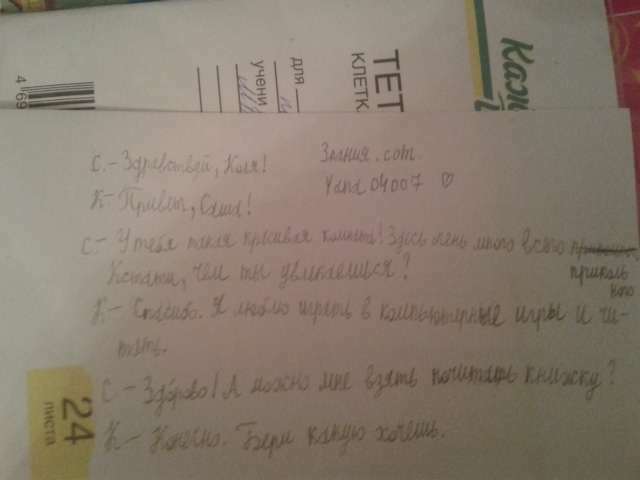 Каж
ТЕТ
КЛЕТК
для
учени
4 69
Знания.com.
Yana04007 ♡
С.- Здравствуй, Коля!
К- Привет, Саша!
С- У тебя такая красивая комната! Здесь очень много всего
приколь
ного
Кстати, чем ты увлекаешься?
К- Спасибо. Я люблю играть в компьютерные игры и чи-
тать.
С - Здорово! А можно мне взять почитать книжку?
К- Конечно. Бери какую хочешь.
24
листа